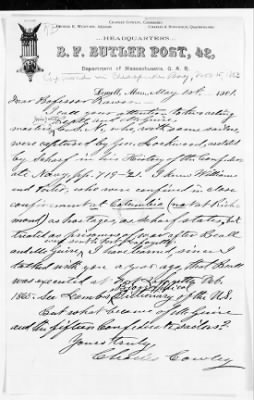 CHARLES COWLEY, COMMANDER
GEORGE E. Adjutant. CHARLES Quartermaster.
HEADQUARTERS
B. F. BUTLER POST, 42,
Department of Massachusetts, G. A. R.
Captured in Chesapeake Bay, Nov. 15, 1863
Lowell, Mass., May 10th, 1901.
Dear Professor Rawson:
I call your attention to two acting
masters, C. S. N., who, with some sailors,
were captured by Gen. Lockwood, noted
by Scharf in his History of the Confeder-
ate Navy, pp. 719-21. I knew Williams
and Porter, who were confined in close
confinement at Columbia (not at Rich-
mond) as hostages, as Scharf states, but
treated as prisoners of war after Beall
and McGuire. I have learned, since I
talked with you a year ago, that Beall
was executed at Feb.
1865. See Dictionary of the U.S.
But what became of McGuire
and the fifteen Confederate sailors?
Yours truly,
Charles Cowley